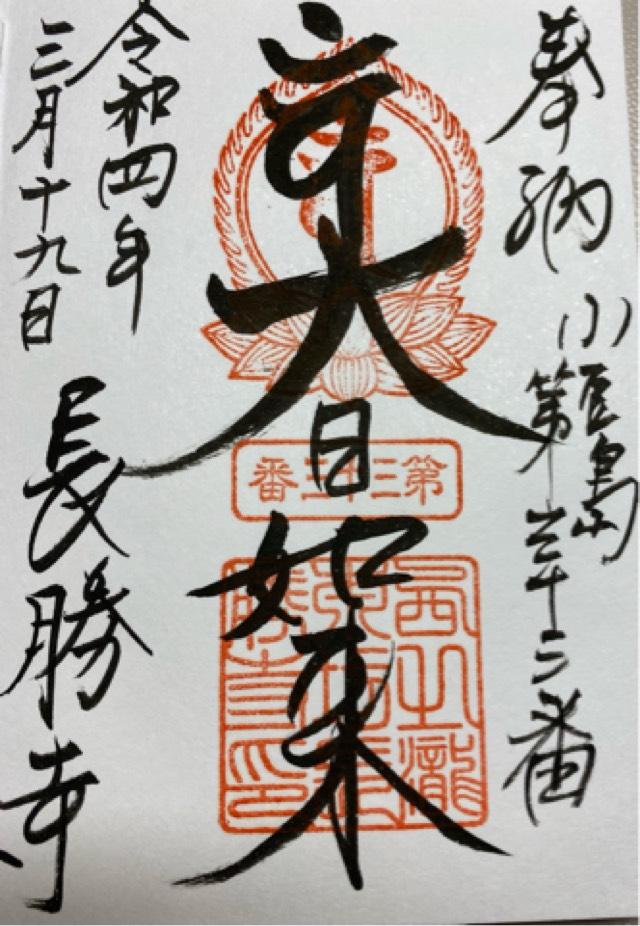 奉納
小豆島
第三十三番
大日如来
第三十三番
令和四年
三月十九日
長勝寺